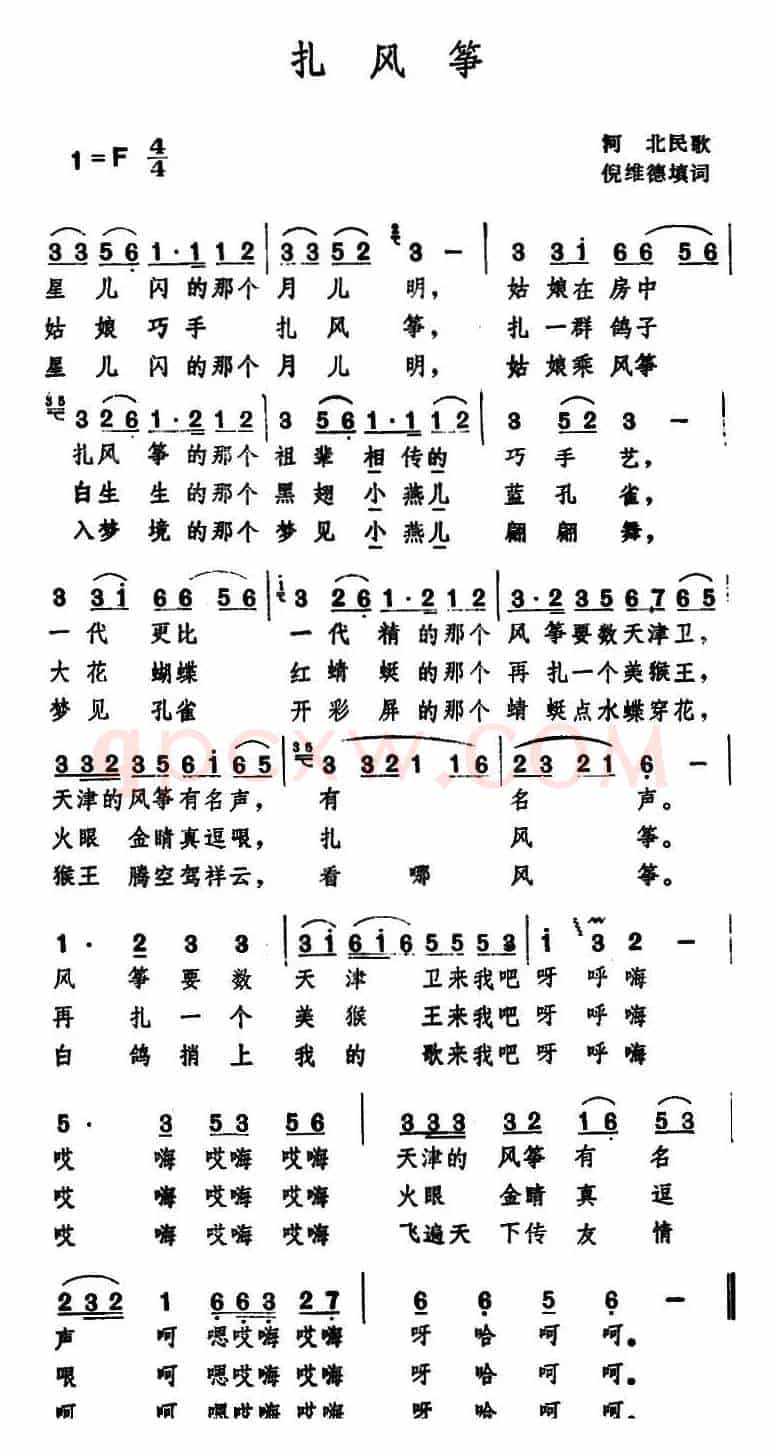 扎风筝
1=F 4/4
河北民歌
倪维德填词
3 3 5 6 1·1 1 2 | 3 3 5 2 2 3 － | 3 3 i 6 6 5 6 |
星儿闪的那个月儿明，姑娘在房中
姑娘巧手扎风筝，扎一群鸽子
星儿闪的那个月儿明，姑娘乘风筝
35 3 2 6 1·2 1 2 | 3 5 6 1·1 1 2 | 3 5 2 3 － |
扎风筝的那个祖辈相传的巧手艺，
白生生的那个黑翅小燕儿蓝孔雀，
入梦境的那个梦见小燕儿翩翩舞，
3 3 i 6 6 5 6 | i 3 2 6 1·2 1 2 | 3·2 3 5 6 7 6 5 |
一代更比一代精的那个风筝要数天津卫，
大花蝴蝶红蜻蜓的那个再扎一个美猴王，
梦见孔雀开彩屏的那个蜻蜓点水蝶穿花，
3 3 2 3 5 6 i 6 5 | 35 3 3 2 1 1 6 | 2 3 2 1 6 － |
天津的风筝有名声，有名声。
火眼金睛真逗哏，扎风筝。
猴王腾空驾祥云，看哪风筝。
1· 2 3 3 | 3 i 6 i 6 5 5 5 3 | i 3 2 － |
风筝要数天津卫来我吧呀呼嗨
再扎一个美猴王来我吧呀呼嗨
白鸽捎上我的歌来我吧呀呼嗨
5· 3 5 3 5 6 | 3 3 3 3 2 1 6 5 3 |
哎嗨哎嗨哎嗨天津的风筝有名
哎嗨哎嗨哎嗨火眼金睛真逗
哎嗨哎嗨哎嗨飞遍天下传友情
2 3 2 1 6 6 3 2 7 | 6 6 5 6 － ‖
声呵嗯哎嗨哎嗨呀哈呵呵。
哏呵嗯哎嗨哎嗨呀哈呵呵。
呵呵嗯哎嗨哎嗨呀哈呵呵。
qpcxw.COM